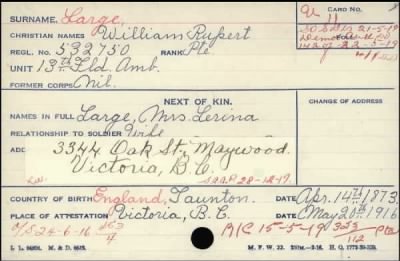 CARD NO.
SURNAME. Large,
CHRISTIAN NAMES William Rupert
S.O.S. Dis 21-5-19
REGL. NO. 532750 RANK Pte
Demob
22-5-19
UNIT 13th Fld. Amb.
FORMER CORPS Nil.
NEXT OF KIN.
CHANGE OF ADDRESS
NAMES IN FULL Large, Mrs. Lerina
RELATIONSHIP TO SOLDIER Wife
ADD 3344 Oak St., Maywood.
Victoria, B.C.
28-12-17.
COUNTRY OF BIRTH England, Taunton. DATE Apr. 14th 1873.
PLACE OF ATTESTATION Victoria, B.C. DATE May 20th 1916
O/S 24-6-16 R/C 15-5-19 Pte
L. L. M. & D. M. F. W. 22. H. Q.